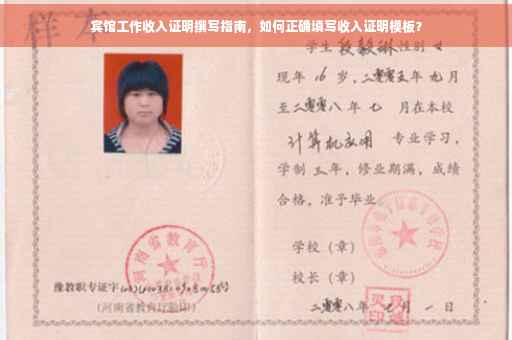 宾馆工作收入证明撰写指南，如何正确填写收入证明模板？
样本
学生 段毅琳 性别 女
现年 16 岁，二零零五年 九月
至二零零八年 七 月在本校
计算机应用 专业学习，
学制 三 年，修业期满，成绩
合格，准予毕业。
学校（章）
校长（章）
河南省教育厅
豫教职专证字
（河南省教育厅验印）
二零零八年 月 一 日